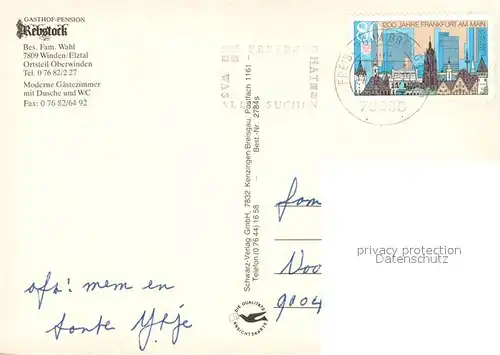 GASTHOF-PENSION
Rebstock
Bes. Fam. Wahl
7809 Winden/Elztal
Ortsteil Oberwinden
Tel. 0 76 82/2 27
Moderne Gästezimmer
mit Dusche und WC
Fax: 0 76 82/64 92
80
1200 JAHRE FRANKFURT AM MAIN
HAT
WAS
ALLE SUCHEN
Schwarz-Verlag GmbH, 7832 Kenzingen/Breisgau, Postfach 1161 -
Telefon (0 76 44) 16 58 - Best.-Nr. 2784s
DIE QUALITÄTS
ANSICHTSKARTE
fam
Noo
9004
privacy protection
Datenschutz
afz: mem en
tante Ytje